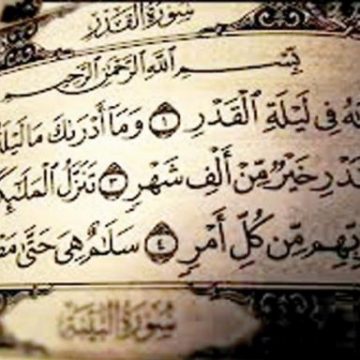 سُورَةُ الْقَدْرِ
بِسْمِ اللَّهِ الرَّحْمَٰنِ الرَّحِيمِ
فِي لَيْلَةِ الْقَدْرِ ۝١ وَمَا أَدْرَىٰكَ مَا لَيْلَةُ
خَيْرٌ مِّنْ أَلْفِ شَهْرٍ ۝٣ تَنَزَّلُ
مِّن كُلِّ أَمْرٍ ۝٤ سَلَامٌ هِيَ حَتَّىٰ
سُورَةُ الْبَيِّنَةِ